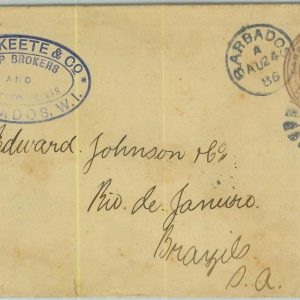 KEETE & CO
P BROKERS
AND
ADOS, W.I.
BARBADOS
A
AU 24
86
Edward Johnson & Co.
Rio de Janeiro.
Brazils
S. A.